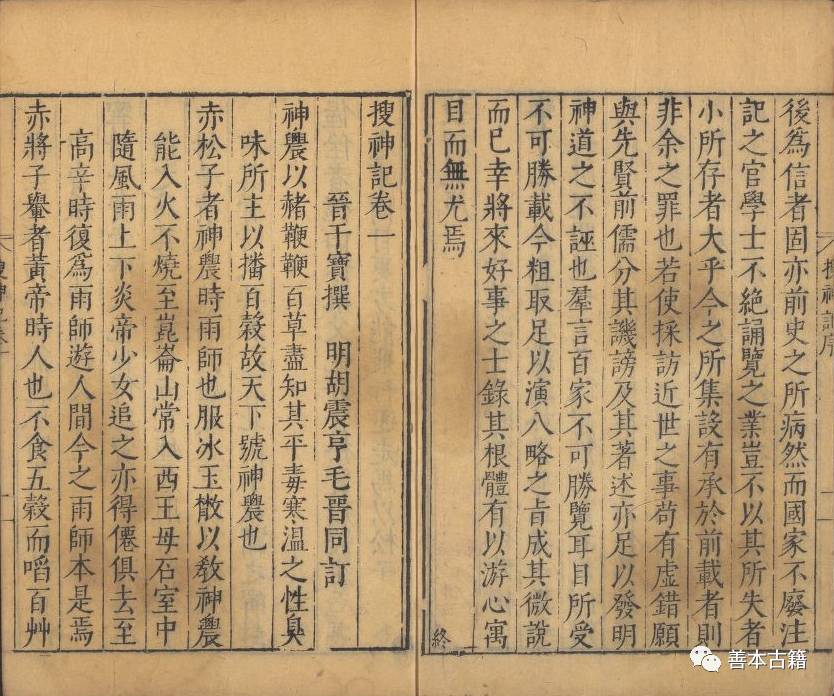 後爲信者固亦前史之所病然而國家不廢注
記之官學士不絕誦覽之業豈不以其所失者
小所存者大乎今之所集設有承於前載者則
非余之罪也若使採訪近世之事苟有虛錯願
與先賢前儒分其譏謗及其著述亦足以發明
神道之不誣也羣言百家不可勝覽耳目所受
不可勝載今粗取足以演八略之旨成其微說
而已幸將來好事之士錄其根體有以游心寓
目而無尤焉
終
搜神記卷一
晉干寶撰　明胡震亨毛晉同訂
神農以赭鞭鞭百草盡知其平毒寒溫之性臭
味所主以播百穀故天下號神農也
赤松子者神農時雨師也服冰玉散以敎神農
能入火不燒至崑崙山常入西王母石室中
隨風雨上下炎帝少女追之亦得僊俱去至
高辛時復爲雨師遊人間今之雨師本是焉
赤將子轝者黃帝時人也不食五穀而啗百艸
搜神記序
搜神記卷一
善本古籍